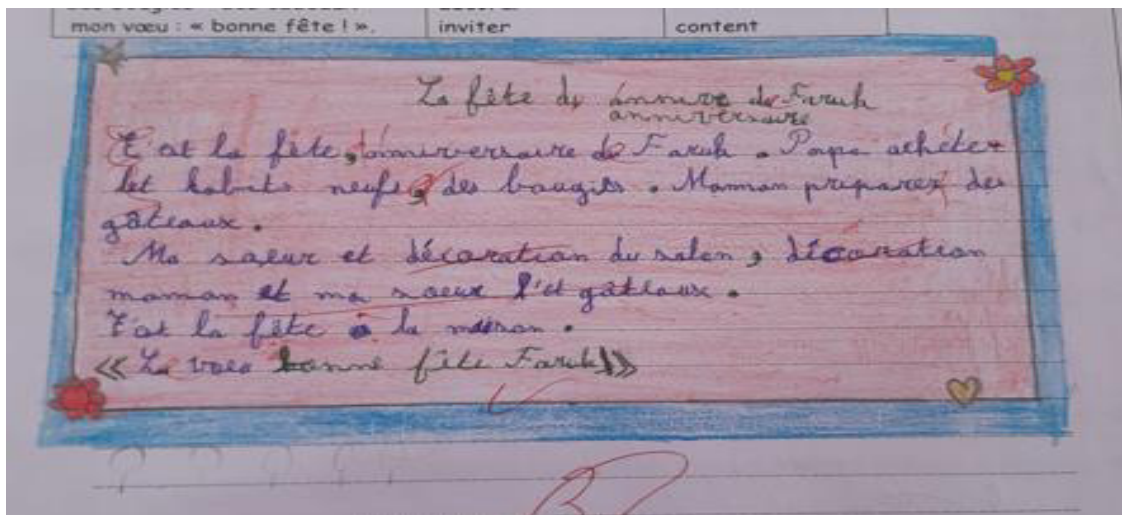 mon vœu : « bonne fête ! ». inviter content
La fête de annivre de Faruk
anniversaire
C'at la fête, anniversaire de Faruk. Papa achéte
let habits neufs, des baugies. Maman preparer des
gâteaux.
Ma saeur et décoration du salon, décoration
maman et ma saeur l'et gâteaux.
C'at la fête à la maison.
« Le voeu bonne fête Faruk »